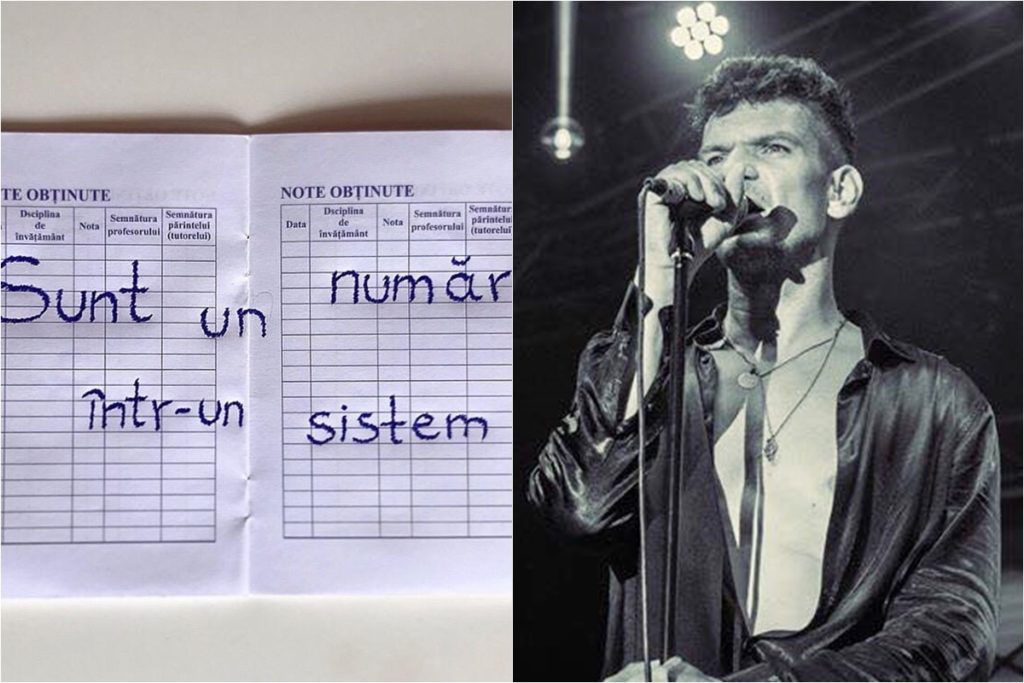 TE OBȚINUTE
Dsciplina de învățământ
Nota
Semnătura profesorului
Semnătura părintelui (tutorelui)
NOTE OBȚINUTE
Data
Dsciplina de învățământ
Nota
Semnătura profesorului
Semnătura părintelui (tutorelui)
Sunt un număr
într-un sistem